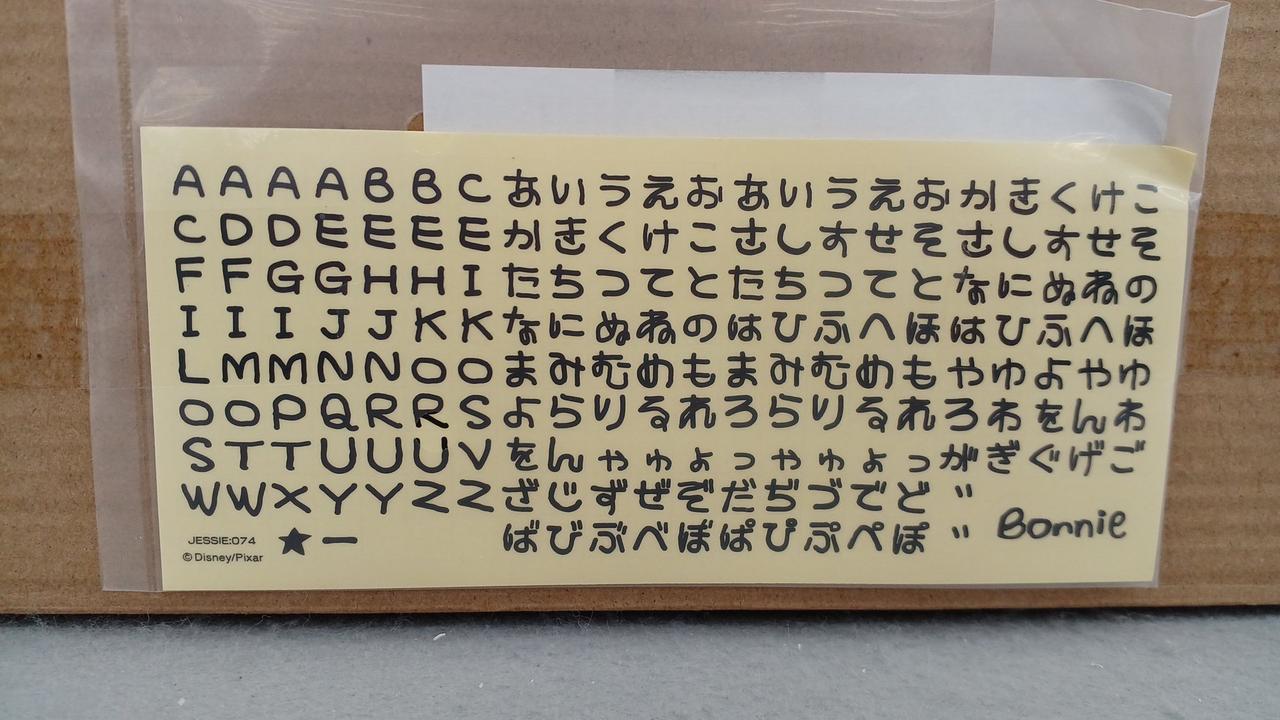 A A A A B B C あ い う え お あ い う え お か き く け こ
C D D E E E E か き く け こ さ し す せ そ さ し す せ そ
F F G G H H I た ち つ て と た ち つ て と な に ぬ ね の
I I I J J K K な に ぬ ね の は ひ ふ へ ほ は ひ ふ へ ほ
L M M N N O O ま み む め も ま み む め も や ゆ よ や ゆ
O O P Q R R S よ ら り る れ ろ ら り る れ ろ わ を ん わ
S T T U U U V を ん ゃ ゅ ょ っ ゃ ゅ ょ っ が ぎ ぐ げ ご
W W X Y Y Z Z ざ じ ず ぜ ぞ だ ぢ づ で ど ゛
★ ー ば び ぶ べ ぼ ぱ ぴ ぷ ぺ ぽ ゛ Bonnie
JESSIE:074
©Disney/Pixar